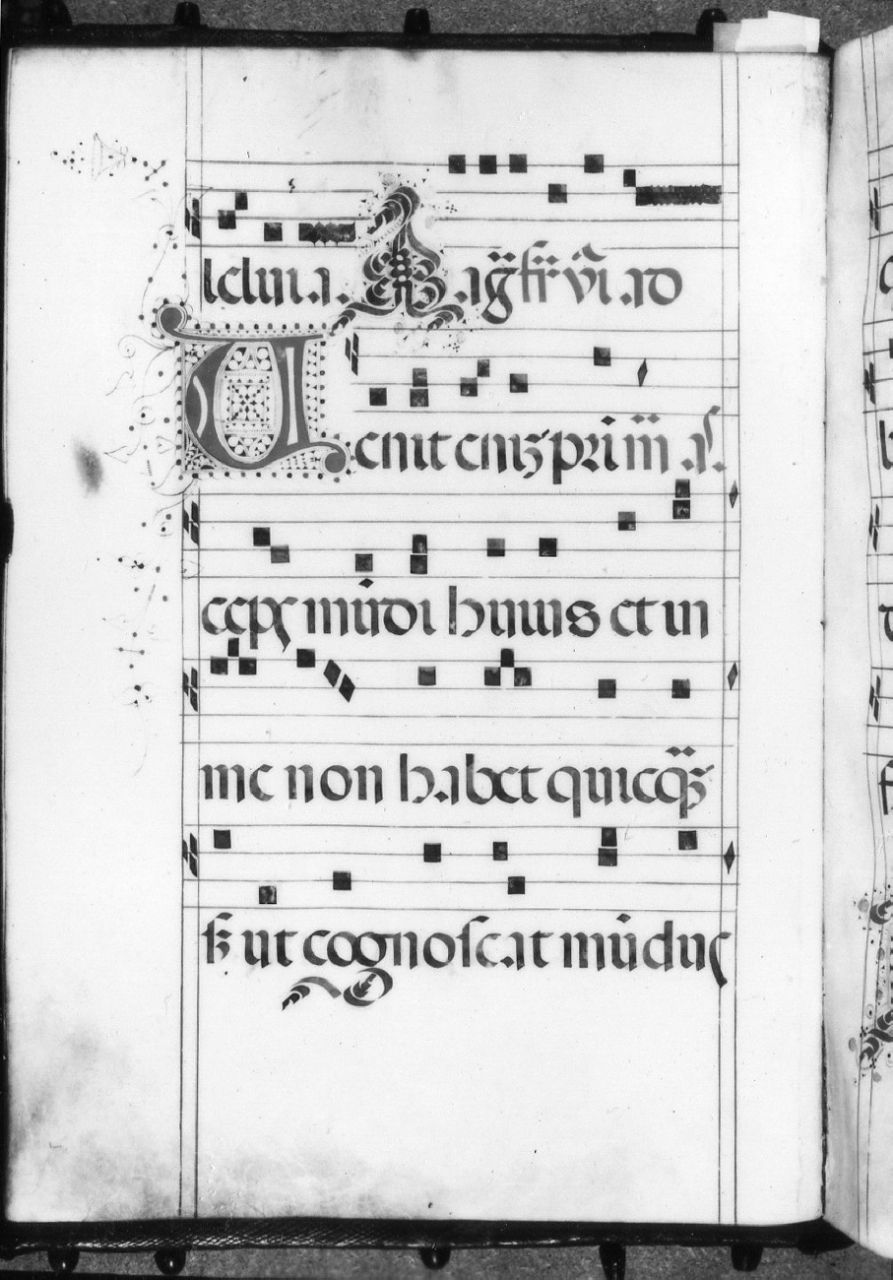 leluia. Mag̃ fr̃ vĩ ad
Uenit eniʒ pri m̃ .a.
ceps mũdi huius et in
me non habet quicqʒ
sʒ ut cognoscat mũdus